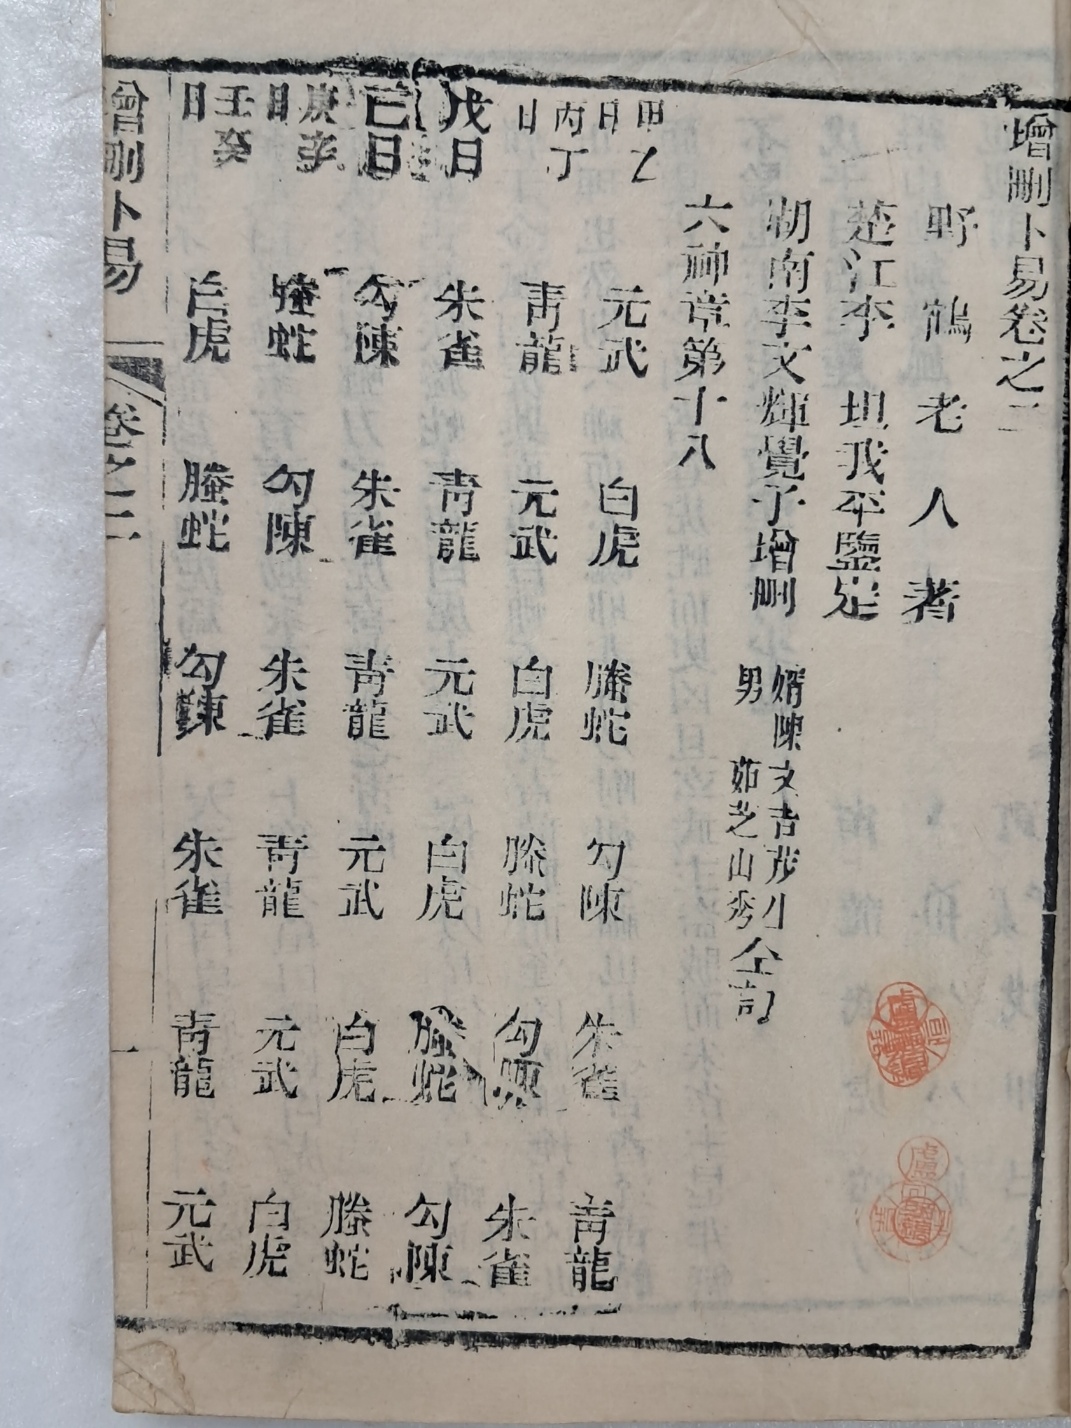 增刪卜易卷之二
野鶴老人著
楚江李坦我平鑒定
湖南李文輝覺子增刪
婿陳文吉茂生
男茹芝山秀
仝訂
六神章第十八
甲乙日 元武 白虎 螣蛇 勾陳 朱雀 青龍
丙丁日 青龍 元武 白虎 螣蛇 勾陳 朱雀
戊日 朱雀 青龍 元武 白虎 螣蛇 勾陳
己日 勾陳 朱雀 青龍 元武 白虎 螣蛇
庚辛日 螣蛇 勾陳 朱雀 青龍 元武 白虎
壬癸日 白虎 螣蛇 勾陳 朱雀 青龍 元武
增刪卜易 卷之二 一